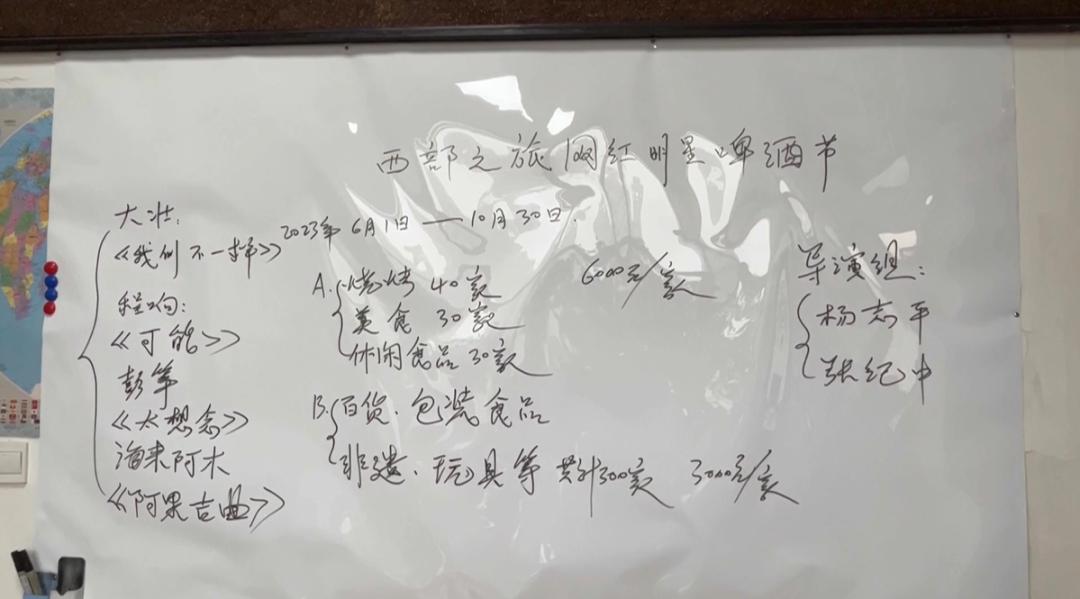 西部之旅网红明星啤酒节
2023年6月1日——10月30日.
大壮:
《我们不一样》
程响:
《可能》
彭筝
《太想念》
海来阿木
《阿果吉曲》
A.烧烤 40家 6000元/家
美食 30家
休闲食品 30家
B.百货.包装食品
非遗.玩具等 共计300家 3000元/家
导演组:
杨志平
张纪中